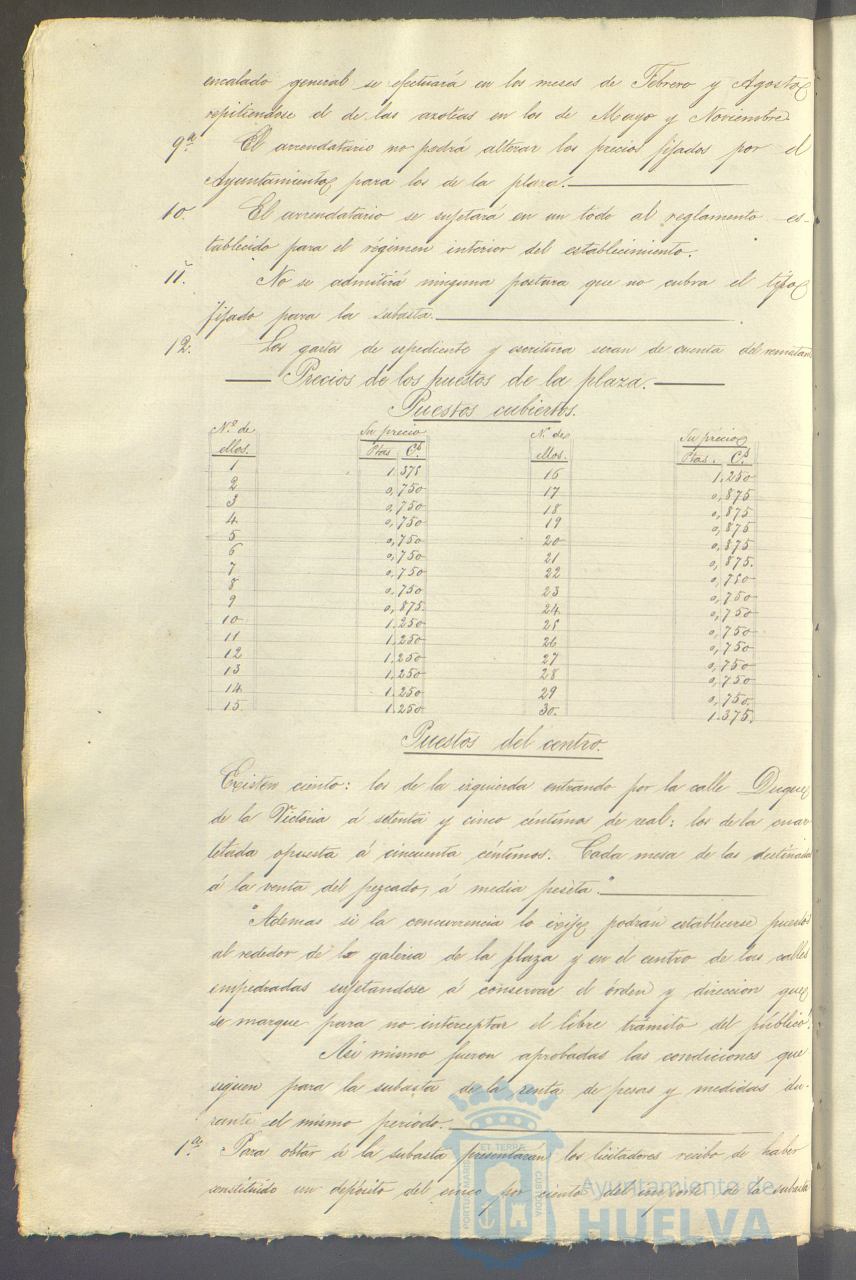 encalado general se efectuará en los meses de Febrero y Agosto
repitiendose el de las azoteas en los de Mayo y Noviembre
9ª. El arrendatario no podrá alterar los precios fijados por el
Ayuntamiento para los de la plaza.
10. El arrendatario se sujetará en un todo al reglamento es-
tablecido para el régimen interior del establecimiento.
11. No se admitirá ninguna postura que no cubra el tipo
fijado para la subasta.
12. Los gastos de espediente y escritura seran de cuenta del rematan
Precios de los puestos de la plaza.
Puestos cubiertos.
Nº. de ellos. Su precio Ptas Cs. Nº. de ellos. Su precio Ptas. Cs.
1 1,375 16 1,250
2 0,750 17 0,875
3 0,750 18 0,875
4 0,750 19 0,875
5 0,750 20 0,875
6 0,750 21 0,875
7 0,750 22 0,750
8 0,750 23 0,750
9 0,875 24 0,750
10 1,250 25 0,750
11 1,250 26 0,750
12 1,250 27 0,750
13 1,250 28 0,750
14 1,250 29 0,750
15. 1,250 30. 1.375.
Puestos del centro.
Existen ciento: los de la izquierda entrando por la calle Duque
de la Victoria á setenta y cinco céntimos de real: los de la cuar
telada opuesta á cincuenta céntimos. Cada mesa de las destinadas
á la venta del pezcado, á media peseta."
"Ademas si la concurrencia lo exije podrán establecerse puestos
al rededor de la galeria de la plaza y en el centro de las calles
empedradas sujetandose á conservar el órden y direccion que
se marque para no interceptar el libre tránsito del público".
Asi mismo fueron aprobadas las condiciones que
siguen para la subasta de la renta de pesas y medidas du-
rante el mismo periodo.
1ª. Para obtar á la subasta presentarán los licitadores recibo de haber
constituido un depósito del cinco por ciento del importe de la subasta
PORTUS MARIS ET TERRE CUSTODIA
Ayuntamiento de
HUELVA